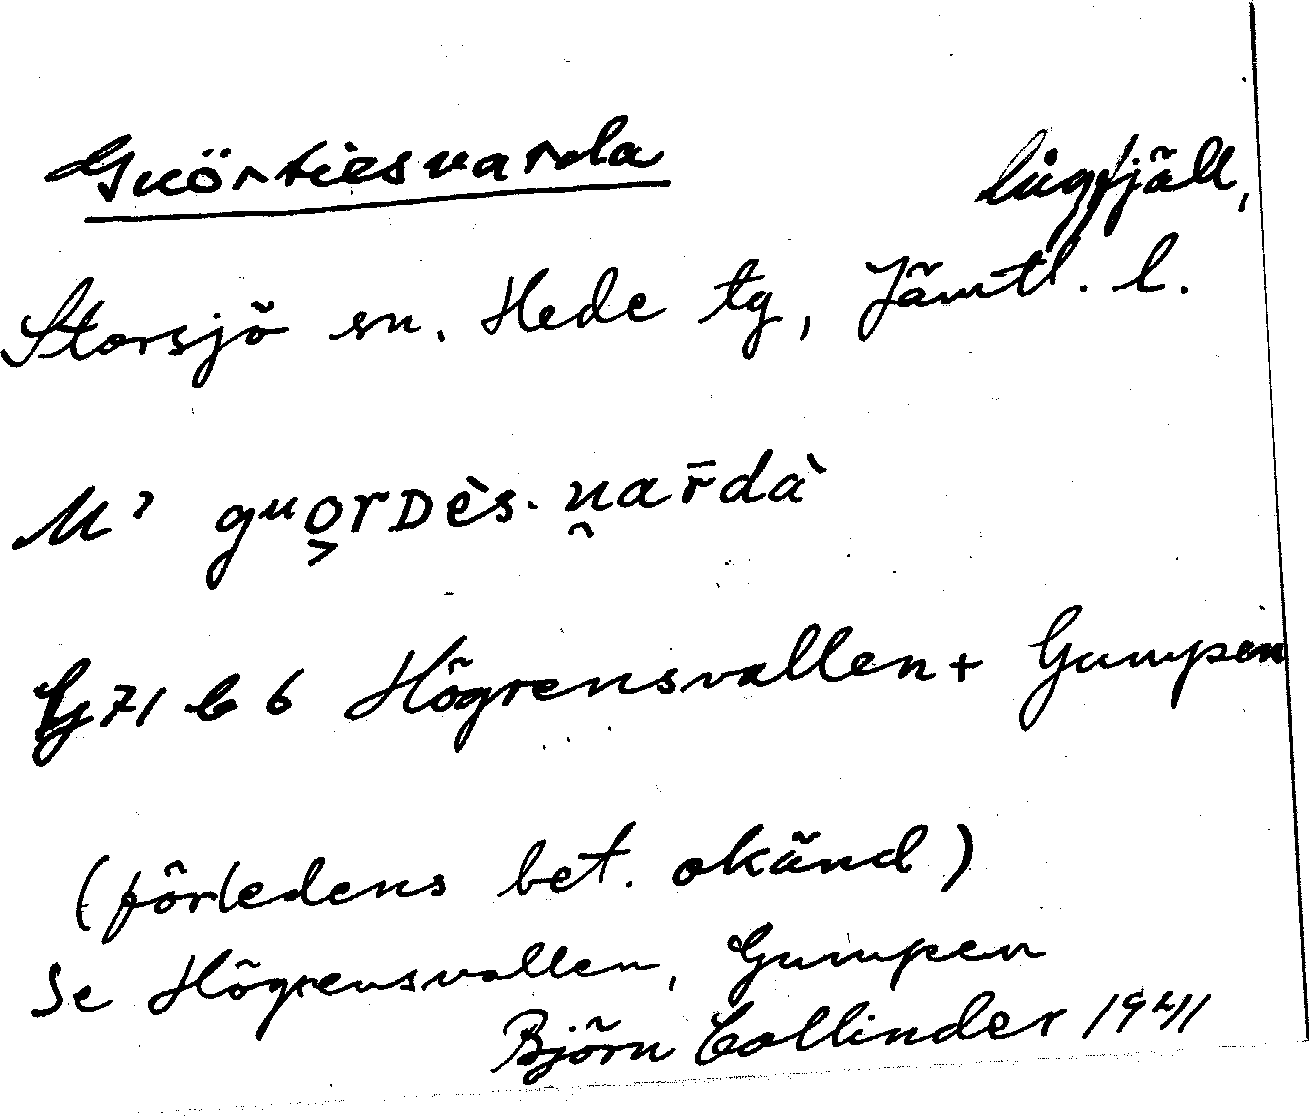 Guörtiesvarda lågfjäll,
Storsjö sn. Hede tg, Jämtl. l.
M' guo̬rDès. u̯ar̄dà
G 71 b 6 Högrensvallen + Gumpen
(förledens bet. okänd)
Se Högrensvallen, Gumpen
Björn Collinder 1941